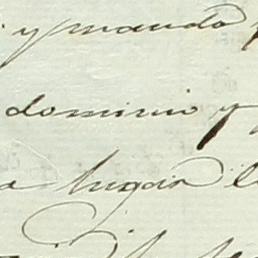 y mando
dominio y
a lugar l